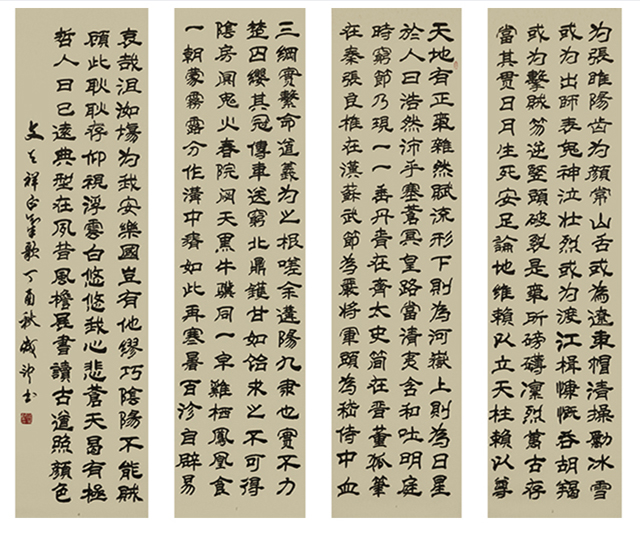 天地有正氣雜然賦流形下則為河嶽上則為日星
於人曰浩然沛乎塞蒼冥皇路當清夷含和吐明庭
時窮節乃現一一垂丹青在齊太史簡在晉董狐筆
在秦張良椎在漢蘇武節為嚴將軍頭為嵇侍中血
为張睢陽齿为顏常山舌或為遼東帽清操勵冰雪
或为出師表鬼神泣壯烈或为渡江楫慷慨吞胡羯
或为擊賊笏逆竪頭破裂是氣所磅礴凜烈萬古存
當其贯日月生死安足論地維賴以立天柱賴以尊
三綱實繫命道義为之根嗟余遘陽九隶也實不力
楚囚纓其冠傳車送窮北鼎鑊甘如飴求之不可得
陰房闃鬼火春院閟天黑牛驥同一皁雞栖鳳凰食
一朝蒙霧露分作溝中瘠如此再寒暑百沴自辟易
哀哉沮洳場为我安樂國豈有他繆巧陰陽不能賊
顧此耿耿存仰視浮雲白悠悠我心悲蒼天曷有極
哲人日已遠典型在夙昔風檐展書讀古道照顏色
文天祥正氣歌丁酉秋